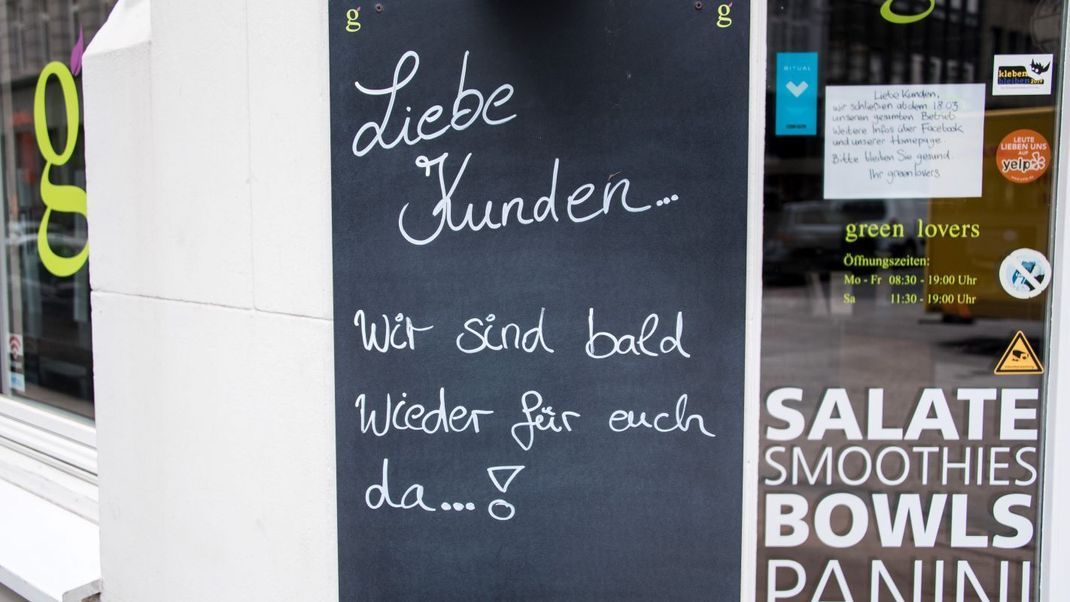 g
g
Liebe
Kunden...
Wir sind bald
Wieder für euch
da...!
g
RITUAL
kleben
bleiben
Liebe Kunden,
wir schließen ab dem 18.03.
unseren gesamten Betrieb
Weitere Infos über Facebook
und unserer Homepage.
Bitte bleiben Sie gesund.
Ihr greenlovers
LEUTE
LIEBEN UNS
AUF
yelp
green lovers
Öffnungszeiten:
Mo - Fr 08:30 - 19:00 Uhr
Sa 11:30 - 19:00 Uhr
SALATE
SMOOTHIES
BOWLS
PANINI